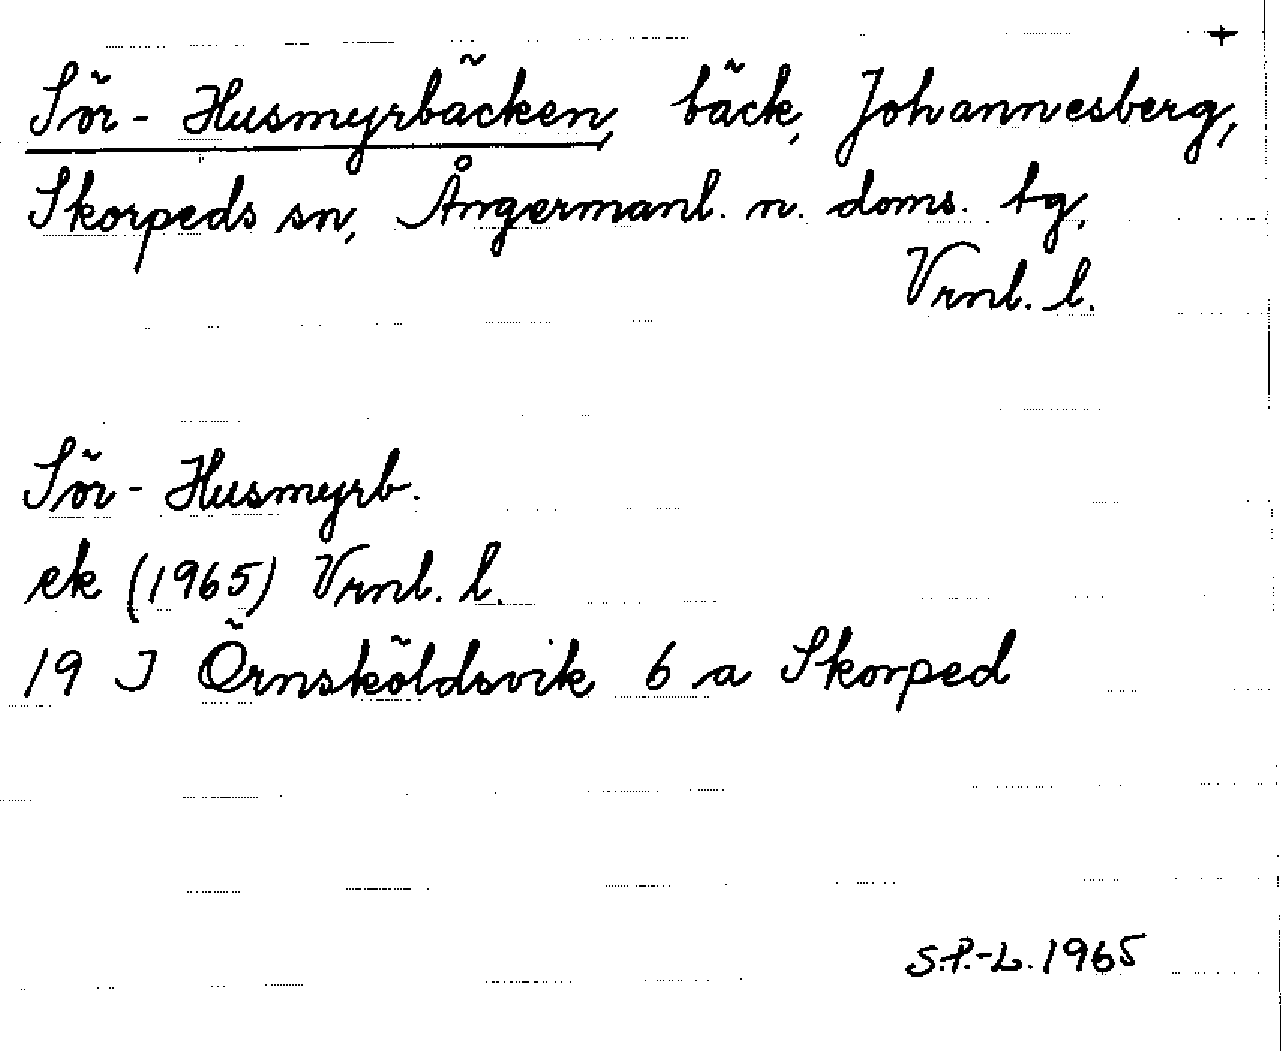 +
Sör-Husmyrbäcken, bäck, Johannesberg,
Skorpeds sn, Ångermanl. n. doms. tg,
Vrnl. l.
Sör-Husmyrb.
ek (1965) Vrnl. l.
19 J Örnsköldsvik 6 a Skorped
S.P.-L. 1965